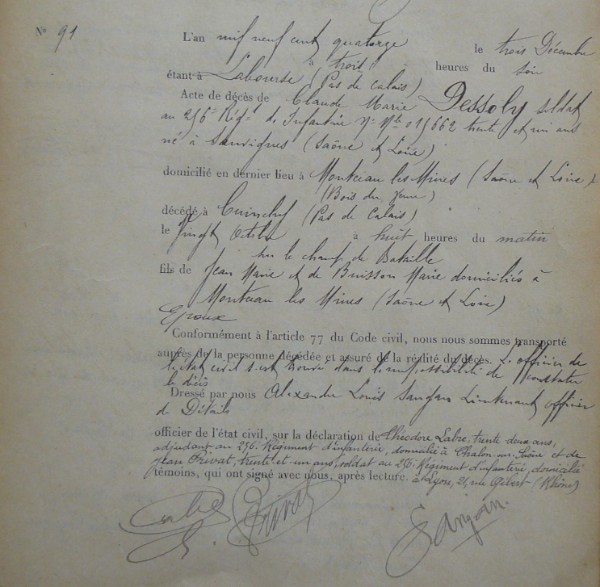 N° 91
L'an mil neuf cent quatorze le trois Décembre
à trois heures du soir
étant à Labourse (Pas de Calais)
Acte de décès de Claude Marie Dessoly soldat
au 256e Rég. de Infanterie N° Mle 011662 trente et un ans
né à Sanvignes (Saône et Loire)
domicilié en dernier lieu à Montceau les Mines (Saône et Loire)
(Bois du
décédé à Cuinchy (Pas de Calais)
le Vingt Octobre à huit heures du matin
sur le champ de Bataille
fils de Jean Marie et de Buisson Marie domiciliés à
Montceau les Mines (Saône et Loire)
Epoux
Conformément à l'article 77 du Code civil, nous nous sommes transporté
auprès de la personne décédée et assuré de la réalité du décès. L'officier de
l'état civil s'est trouvé dans l'impossibilité de constater
le décès
Dressé par nous Alexandre Louis Lieutenant officier
de Détails
officier de l'état civil, sur la déclaration de Théodore Labre, trente deux ans,
adjudant au 256 Régiment d'infanterie, domicilié à Chalon-sur-Saône et de
Jean Privat, trente et un ans, soldat au 256 Régiment d'infanterie, domicilié
témoins, qui ont signé avec nous, après lecture. à Lyon, 21, rue (Rhône)
Labre
Privat